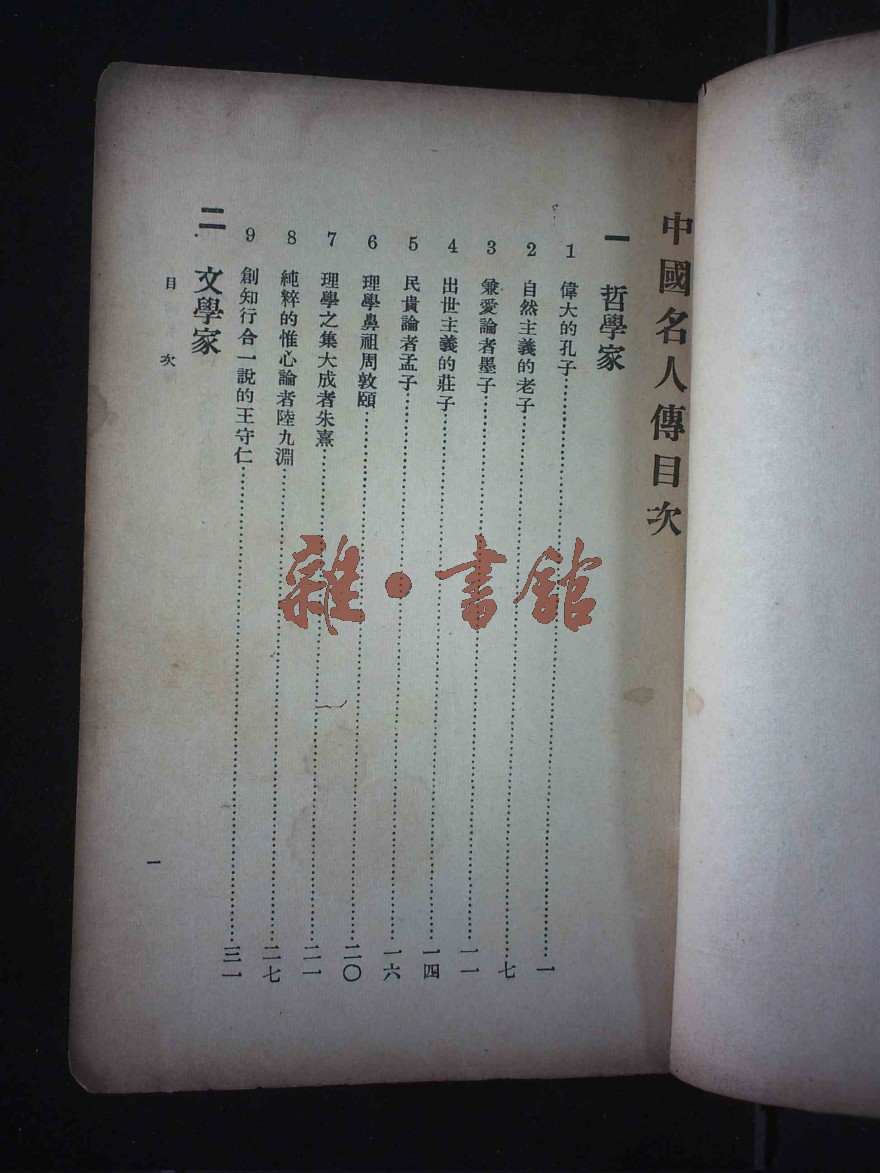 中國名人傳目次
一 哲學家
1 偉大的孔子…………一
2 自然主義的老子…………七
3 兼愛論者墨子…………一一
4 出世主義的莊子…………一四
5 民貴論者孟子…………一六
6 理學鼻祖周敦頤…………二〇
7 理學之集大成者朱熹…………二一
8 純粹的惟心論者陸九淵…………二七
9 創知行合一說的王守仁…………三一
二 文學家
目次
一
雜·書館